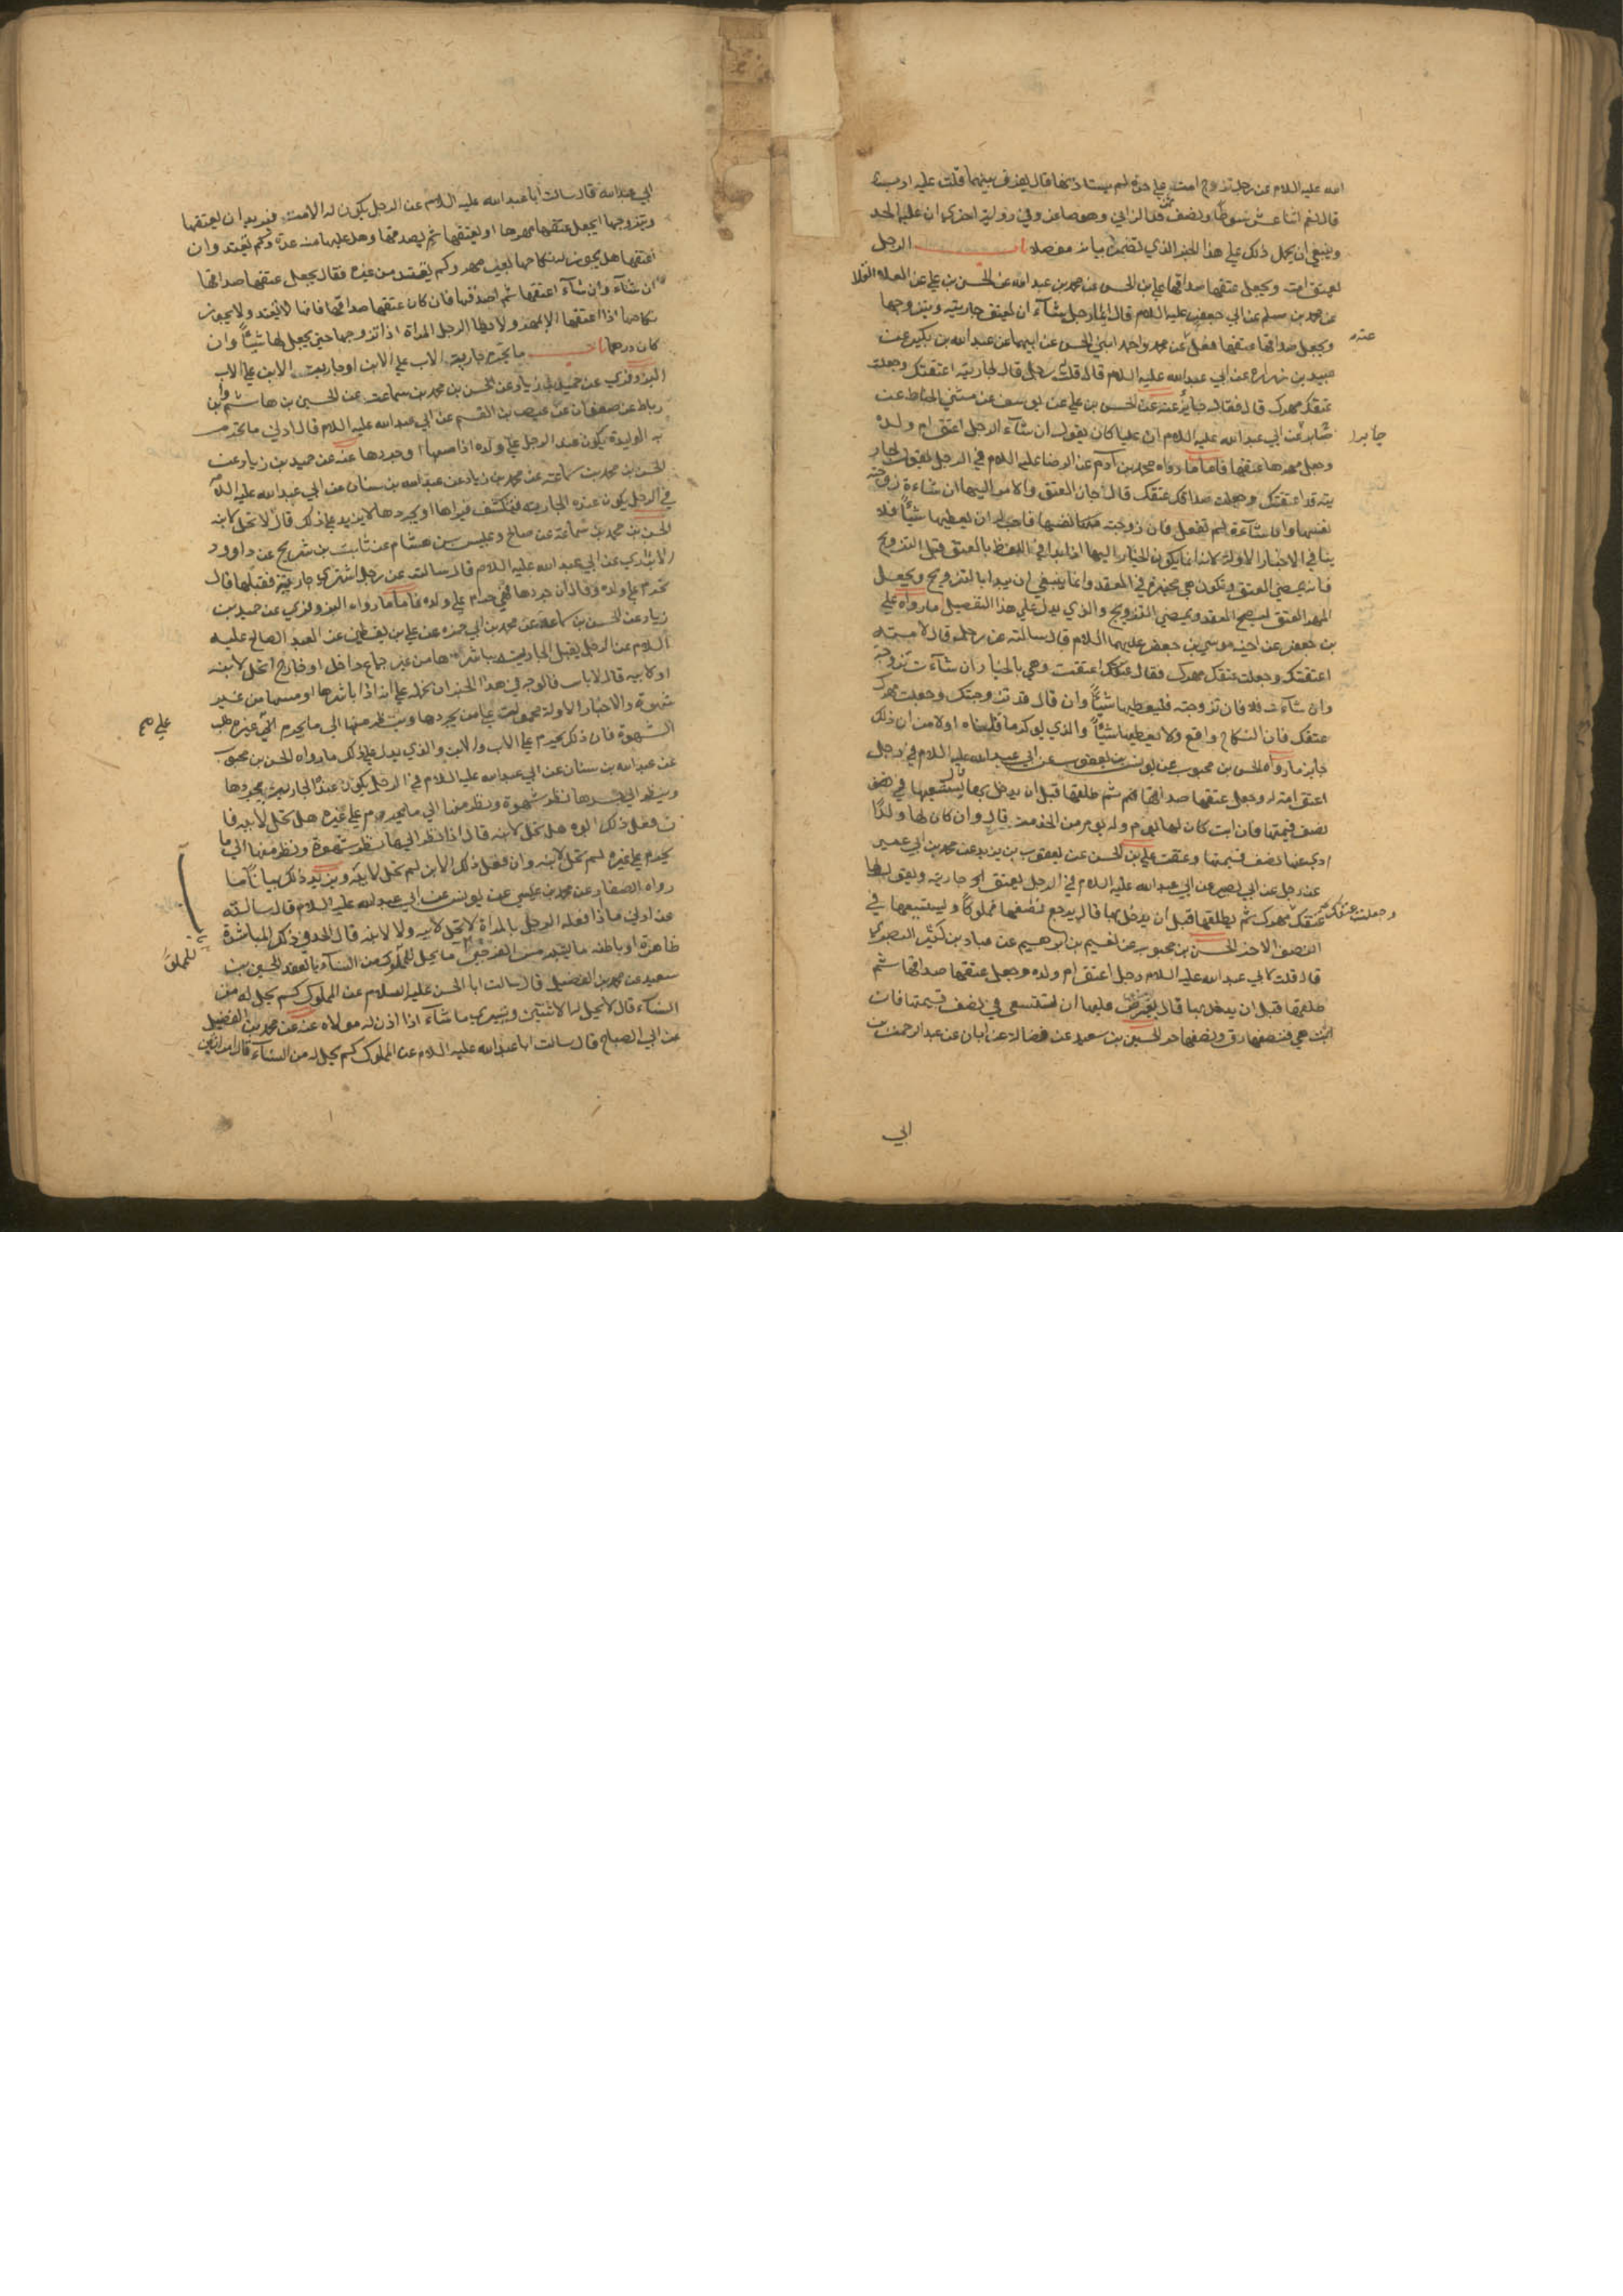 الله عليه السلام عن رجل تزوج امة على حرة لم يستاذنها قال يفرق بينهما قلت عليه ادب
قال نعم اثنا عشر سوطا ونصف ثمن حد الزاني وهو صاغر وفي رواية اخرى ان عليه الحد
وينبغي ان يحمل ذلك على هذا الخبر الذي تضمن بيانه مفصلا باب الرجل
يعتق امته ويجعل عتقها صداقها علي بن الحسن عن محمد بن عبد الله عن الحسن بن علي عن العلاء القلا
عن محمد بن مسلم عن ابي جعفر عليه السلام قال ايما رجل شآء ان يعتق جاريته ويتزوجها
ويجعل صداقها عتقها فعل عن محمد واحمد ابني الحسن عن ابيهما عن عبد الله بن بكير عن
عنه
عبيد بن زرارة عن ابي عبد الله عليه السلام قال قلت رجل قال لجاريته اعتقتك وجعلت
عتقك مهرك قال فقال جايز عنه عن الحسن بن علي عن يوسف عن مثنى الحناط عن
عن ابي عبد الله عليه السلام ان عليا كان يقول ان شآء الرجل اعتق ام ولده
جابر
وجعل مهرها عتقها فاما ما رواه محمد بن آدم عن الرضا عليه السلام في الرجل يقول لجار
يته قد اعتقتك وجعلت صداقك عتقك قال جاز العتق والامر اليها ان شاءة زوجته
نفسها وان شآءة لم تفعل فان زوجته نفسها فاحب له ان يعطيها شيئا فلا
ينافي الاخبار الاولة لانه انما يكون الخيار اليها اذا بدا في اللفظ بالعتق قبل التزويج
فانه يمضي العتق وتكون هي مخيرة في العقد وانما ينبغي ان يبدا بالتزويج ويجعل
المهر العتق ليصح العقد ويمضي التزويج والذي يدل على هذا التفصيل ما رواه علي
بن جعفر عن اخيه موسى بن جعفر عليهما السلام قال سالته عن رجل قال لامته
اعتقتك وجعلت عتقك مهرك فقال عتقت وهي بالخيار ان شآءت تزوجته
وان شآءت فلا فان تزوجته فليعطيها شيئا وان قال قد تزوجتك وجعلت مهرك
عتقك فان النكاح واقع ولا يعطيها شيئا والذي يوكد ما قلناه اولا من ان ذلك
جايز ما رواه الحسن بن محبوب عن يونس بن يعقوب عن ابي عبد الله عليه السلام في رجل
اعتق امة له وجعل عتقها صداقها ثم طلقها قبل ان يدخل بها قال يستسعيها في نصف
نصف قيمتها فان ابت كان لها يوم وله يوم من الخدمة قال وان كان لها ولد
ادى عنها نصف قيمتها وعتقت علي بن الحسن عن يعقوب بن يزيد عن محمد بن ابي عمير
عن رجل عن ابي بصير عن ابي عبد الله عليه السلام في الرجل يعتق جاريته ويقول لها
عتقك مهرك ثم يطلقها قبل ان يدخل بها قال يرجع نصفها مملوكا ويستسعيها في
وجعلت عتقك مهرك
النصف الاخر الحسن بن محبوب عن نعيم بن ابرهيم عن عباد بن كثير البصري
قال قلت لابي عبد الله عليه السلام رجل اعتق ام ولده وجعل عتقها صداقها ثم
طلقها قبل ان يدخل بها قال يعرض عليها ان تستسعي في نصف قيمتها فان
ابت هي فنصفها رق ونصفها حر الحسين بن سعيد عن فضالة عن ابان عن عبد الرحمن بن
ابي
ابي عبد الله قال سالت ابا عبد الله عليه السلام عن الرجل يكون له الامة فيريد ان يعتقها
ويتزوجها ايجعل عتقها مهرها او يعتقها ثم يصدقها وهل عليها منه عدة وكم تعتد وان
اعتقها هل يجوز له نكاحها بغير مهر وكم تعتد من غيره فقال يجعل عتقها صداقها
ان شآء وان شآء اعتقها ثم اصدقها فان كان عتقها صداقها فانها لا تعتد ولا يجوز
نكاحها اذا اعتقها الا بمهر ولا يطا الرجل المراة اذا تزوجها حتى يجعل لها شيئا وان
كان درهما باب ما يحرم جارية الاب على الابن او جارية الابن على الاب
البزوفري عن حميد بن زياد عن الحسن بن محمد بن سماعة عن الحسين بن هاشم وابن
رباط عن صفوان عن عيص بن القسم عن ابي عبد الله عليه السلام قال ادنى ما تحرم
به الوليدة يكون عند الرجل على ولده اذا مسها او جردها عنه عن حميد بن زياد عن
الحسن بن محمد بن سماعة عن محمد بن زياد عن عبد الله بن سنان عن ابي عبد الله عليه السلام
في الرجل يكون عنده الجارية فتنكشف فيراها او يجردها لا يزيد على ذلك قال لا تحل لابنه
الحسن بن محمد بن سماعة عن صالح وعبيس بن هشام عن ثابت بن شريح عن داوود
الابزاري عن ابي عبد الله عليه السلام قال سالته عن رجل اشترى جارية فقبلها قال
تحرم على ولده وقال ان جردها فهي حرام على ولده فاما ما رواه البزوفري عن حميد بن
زياد عن الحسن بن سماعة عن محمد بن ابي حمزه عن علي بن يقطين عن العبد الصالح عليه
السلام عن الرجل يقبل الجارية يباشرها من غير جماع داخل او خارج اتحل لابنه
او لابيه قال لا باس فالوجه في هذا الخبر ان نحمله على انه اذا باشرها او مسها من غير
شهوة والاخبار الاولة محمولة على من يجردها وينظر منها الى ما يحرم على غيره
على
الشهوة فان ذلك يحرم على الاب والابن والذي يدل على ذلك ما رواه الحسن بن محبوب
عن عبد الله بن سنان عن ابي عبد الله عليه السلام في الرجل يكون عنده الجارية يجردها
وينظر الى جسدها نظر شهوة وينظر منها الى ما يحرم على غيره هل تحل لابيه وا
ن فعل ذلك ابوه هل تحل لابنه قال اذا نظر اليها نظر شهوة ونظر منها الى ما
يحرم على غيره لم تحل لابنه وان فعل ذلك الابن لم تحل لابيه ويزيد ذلك بيانا ما
رواه الصفار عن محمد بن عيسى عن يونس عن ابي عبد الله عليه السلام قال سالته
عن ادنى ما اذا فعله الرجل بالمراة لا تحل لابيه ولا لابنه قال الحد في ذلك المباشرة
ظاهرة او باطنه ما يشبه مس الفرجين باب ما يحل للمملوك من النسآء بالعقد الحسين بن
للمملوك
سعيد عن محمد بن الفضيل قال سالت ابا الحسن عليه السلام عن المملوك كم يحل له من
النسآء قال لا يحل له الا ثنتين ويتسرى ما شآء اذا اذن له مولاه عنه عن محمد بن الفضيل
عن ابي الصباح قال سالت ابا عبد الله عليه السلام عن المملوك كم يحل له من النسآء قال امراتين